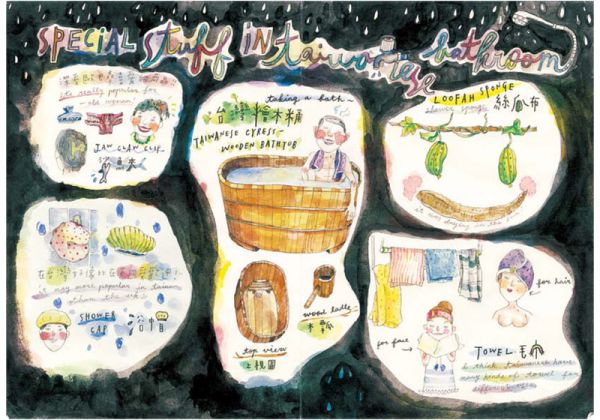 SPECIAL Stuff IN taiwanese bathroom
it's really popular for
old women!
JAW CLAW CLIP
taking a bath
台灣檜木桶
TAIWANESE CYPRESS
WOODEN BATHTUB
LOOFAH SPONGE
絲瓜布
shower sponge
it was drying in the sun
it's may more popular in taiwan
than the uk
SHOWER
CAP
浴帽
wood ladle
木瓢
top view
上視圖
for hair
for face
TOWEL 毛巾
I think taiwanese have
many kinds of towel for